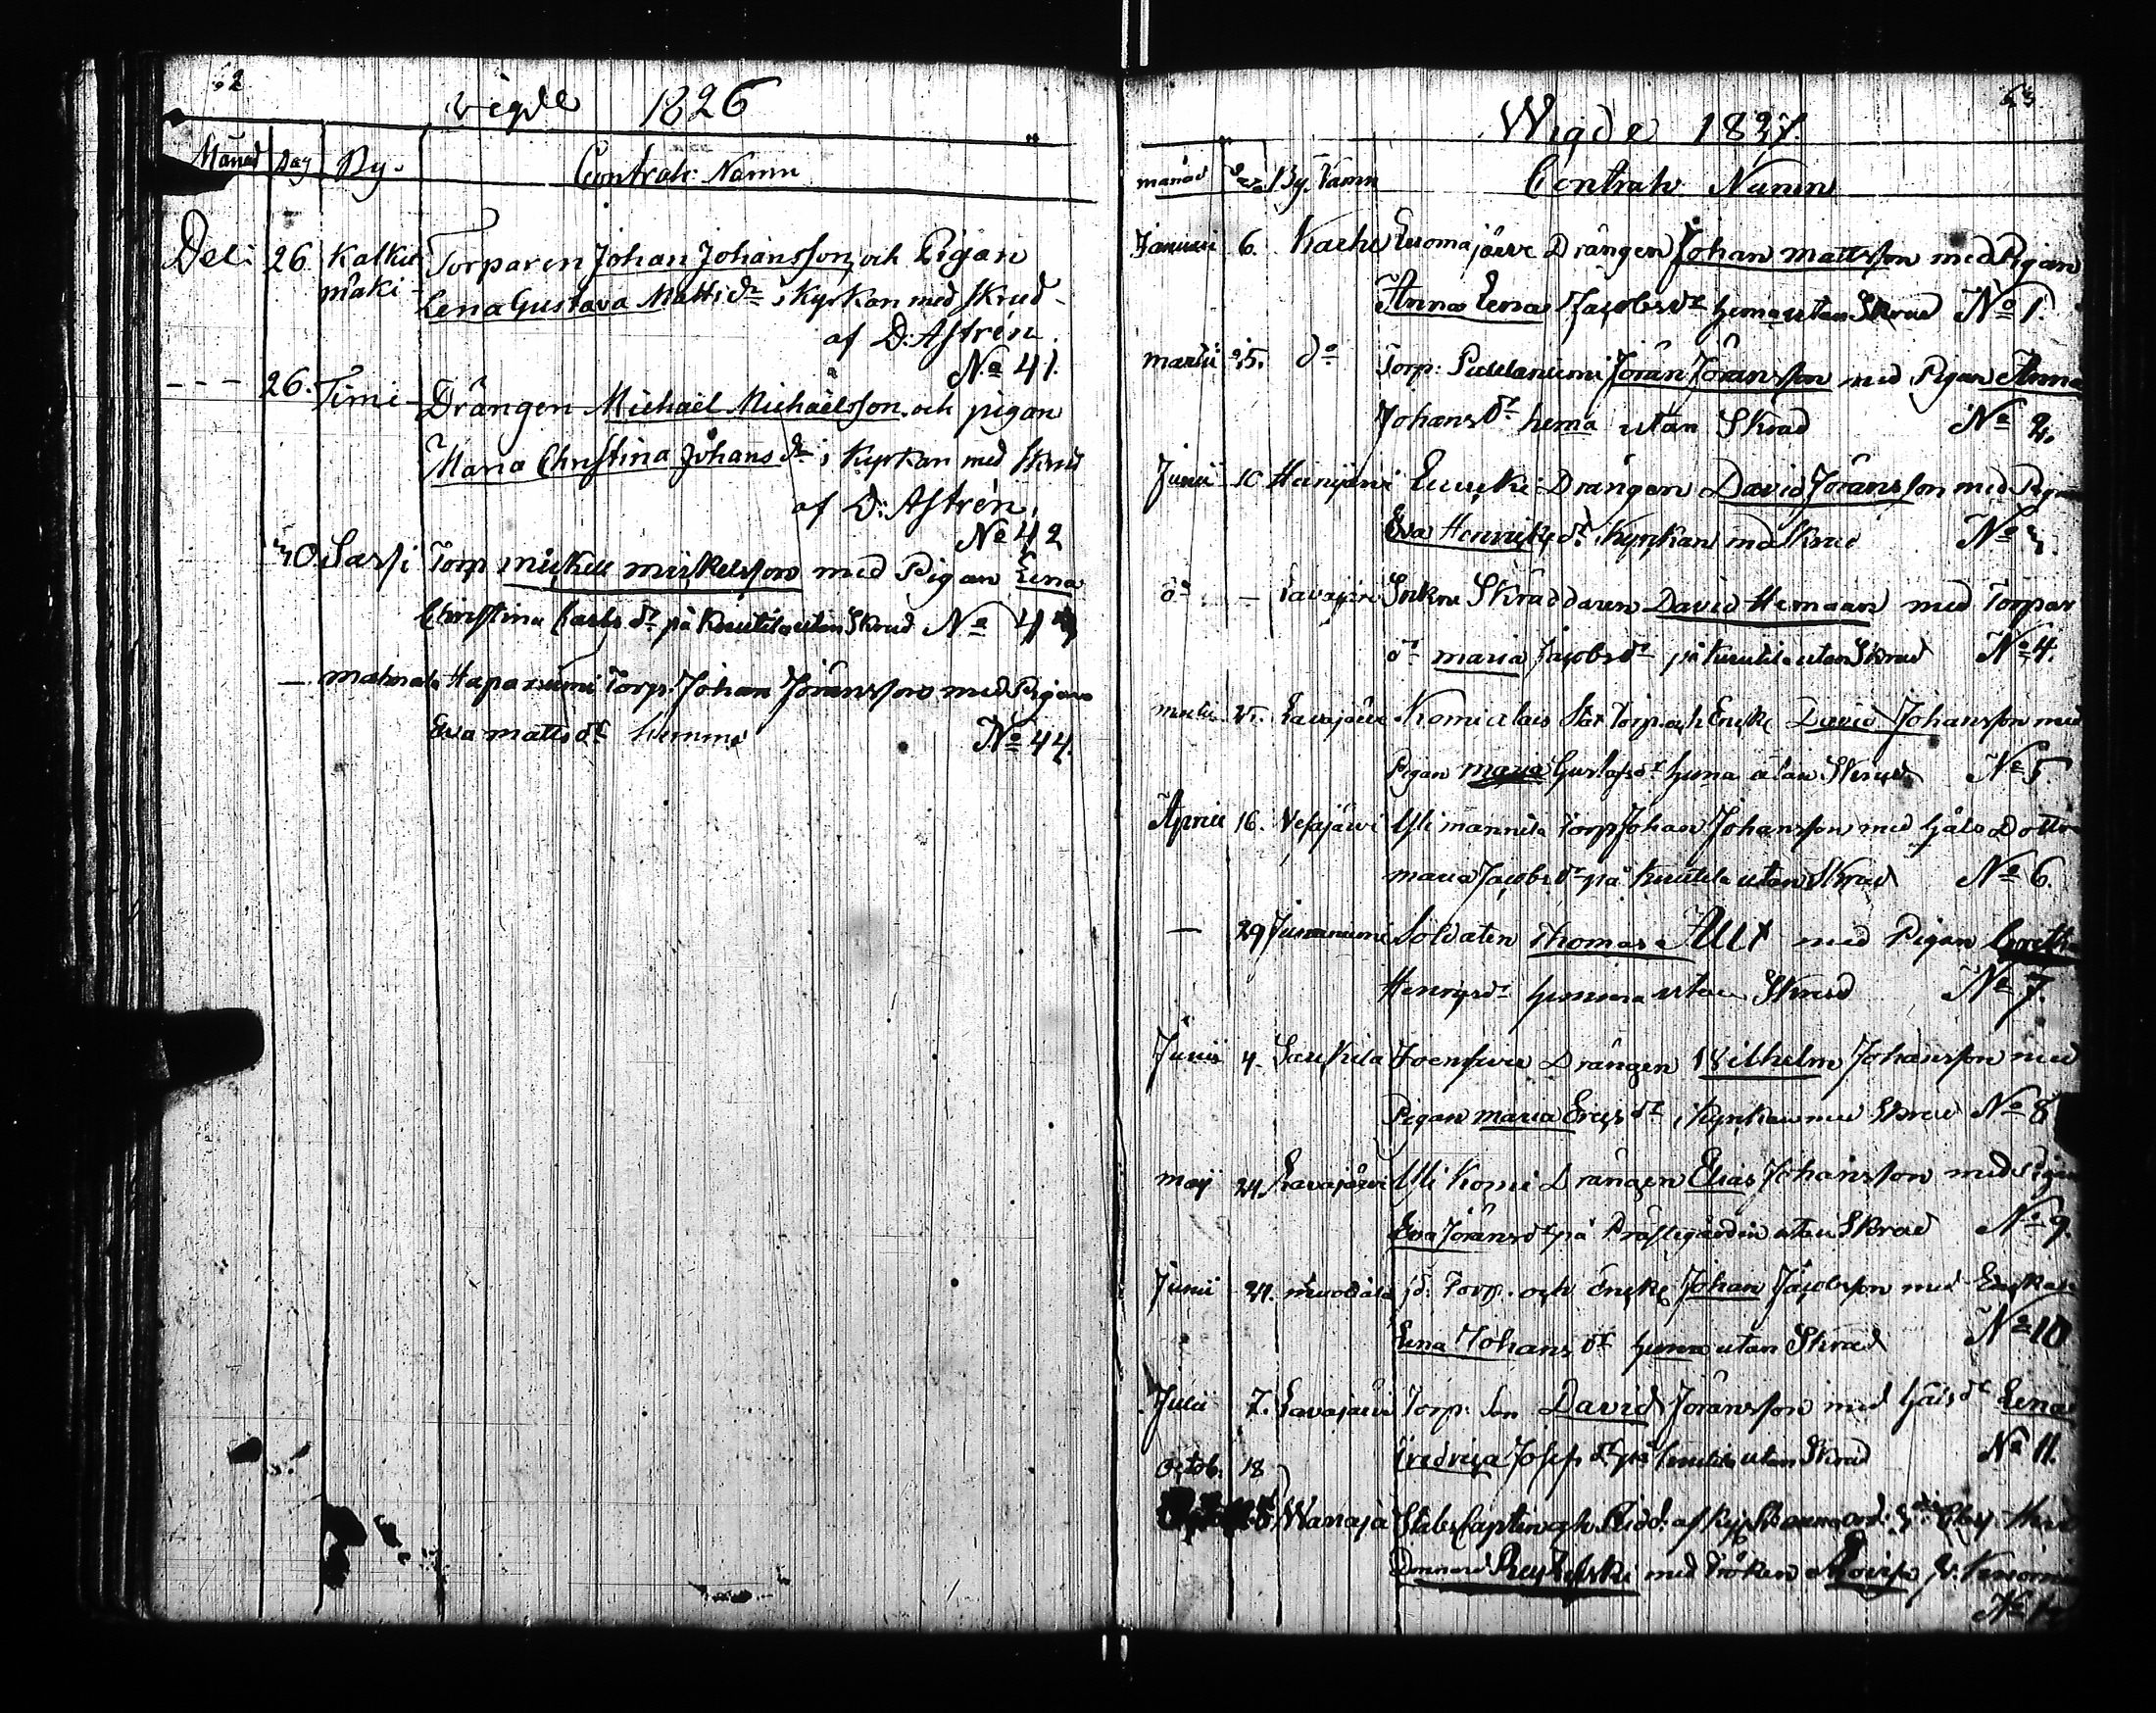 62
vigde 1826
Månad Dag By. Contrah: Namn
Dec: 26 Kalku Torparen Johan Johansson, och Pigan
mäki - Lena Gustava Matts dr i Kyrkan med skrud
af D: Astrén.
No 41.
- - - 26. Timi- Drängen Michaël Michaëlsson, och pigan
Maria Christina Johans dr i Kyrkan med skrud
af D: Astrén.
No 42
30 Sassi Torp mickel mickelsson med Pigan Lena
Christina Carls dr på Knutila utan Skrud No 43
— Haparumi Torp. Johan Jöransson med Pigan
Eva matts dr hemma No 44.
63
Wigde 1827.
månad Dag By. Namn Contrah Namn
Januari 6. Kaehe Luomajärvi Drängen Johan mattsson med Pigan
Anna Lena Jacobs dr hema utan Skrud No 1.
martii 25. do Torp: Jöran Jöransson med Pigan Anna
Johans dr hema utan Skrud No 2.
10 Heinijärvi Drängen David Jöransson med Pigan
Eva Henricks dr i Kyrkan med Skrud No 3.
do — Lavajärvi Skräddaren David Hemaan med Torpar
dr maria Jacobs dr på Knutila utan Skrud No 4.
25. Lavajärvi Komi Torp. och Enkl. David Johansson med
Pigan maria Gustafs dr hema utan Skrud No 5.
Aprill 16. Vesajärvi Yli mannila Torp Johan Johansson med hjåls Dottr
maria Jacobs dr på Knutila utan Skrud No 6.
— 29 Soldaten Thomas Alli med Pigan Greta
Henrics dr hemma utan Skrud No 7.
Junii 4. Saukila Joensuu Drängen Wilhelm Johansson med
Pigan maria Erics dr i Kyrkan med Skrud No 8
maij 24. Lavajärvi Yli Komi Drängen Elias Johansson med Pigan
Eva Jörans dr på Prästegården utan Skrud No 9.
Junii 24. Torp. och Enkl. Johan Jacobsson med Enkan
Lena Johans dr hema utan Skrud No 10
Julii 7. Lavajärvi Torp. Son David Jöransson med hjåls dr Lena
Fredrica Joseps dr på Knutila utan Skrud No 11.
Octob. 18
Wanaja Stabs Capten och Ridd. af
med Fröken Lovisa
No 12